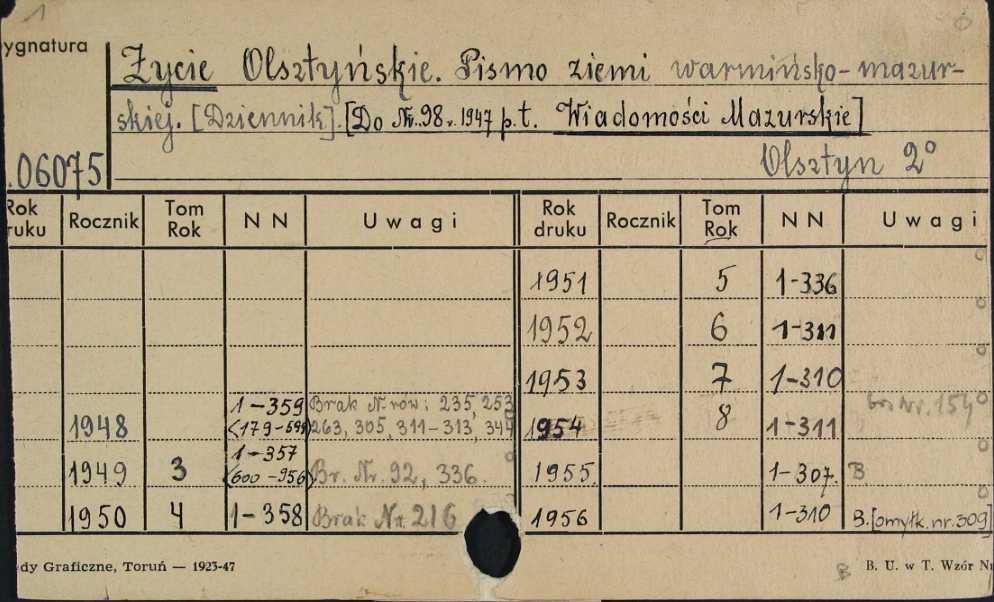 1
ygnatura
Życie Olsztyńskie. Pismo ziemi warmińsko-mazur-
skiej. [Dziennik]. [Do Nr. 98. 1947 p. t. Wiadomości Mazurskie]
Olsztyn 2°
.06075
Rok druku Rocznik Tom Rok N N Uwagi Rok druku Rocznik Tom Rok N N Uwagi
1951 5 1-336
1952 6 1-311
1953 7 1-310
1948 1-359 <179-599> Brak N-rów: 235, 253 263, 305, 311-313, 344 1954 8 1-311 Nr. 154
1949 3 1-357 <600-956> Br. Nr. 92, 336. 1955. 1-307. B
1950 4 1-358 Brak Nr. 216 1956 1-310 B. [omyłk. nr. 309]
dy Graficzne, Toruń — 1923-47
B B. U. w T. Wzór Nr